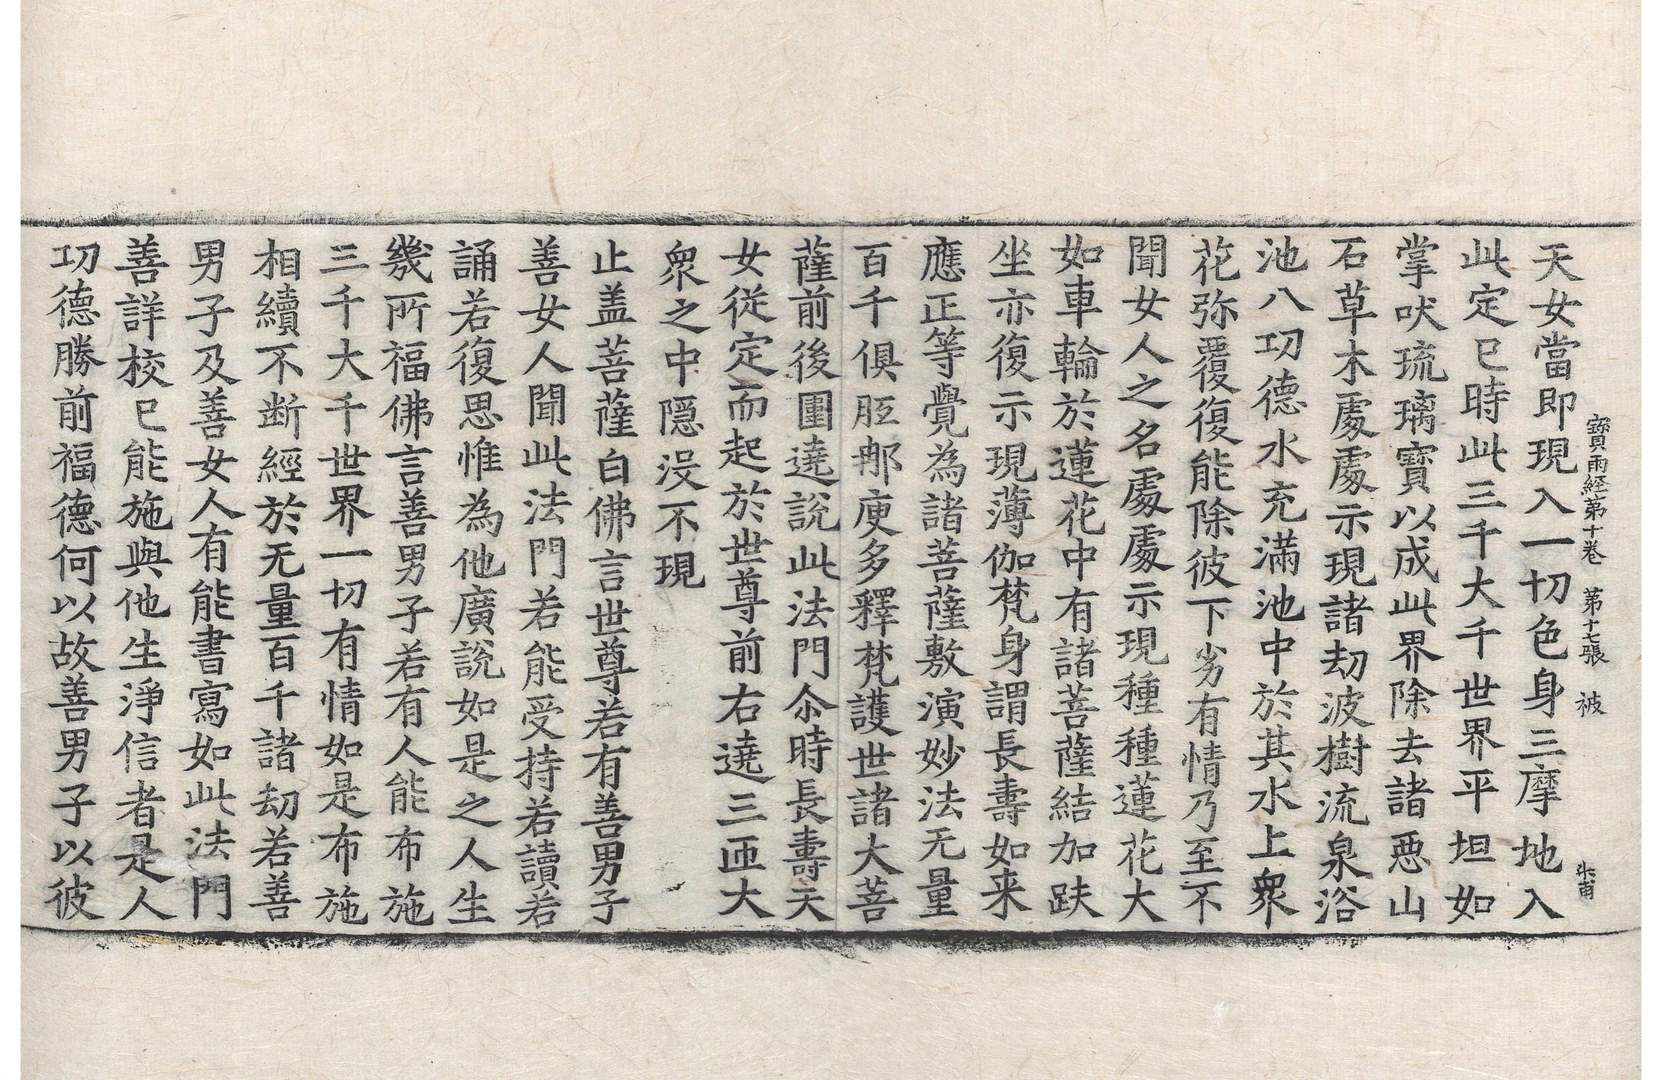 寶雨經第十卷　第十七張　被
天女當即現入一切色身三摩地入
此定已時此三千大千世界平坦如
掌吠琉璃寶以成此界除去諸惡山
石草木處處示現諸劫波樹流泉浴
池八功德水充滿池中於其水上衆
花弥覆復能除彼下劣有情乃至不
聞女人之名處處示現種種蓮花大
如車輪於蓮花中有諸菩薩結加趺
坐亦復示現薄伽梵身謂長壽如来
應正等覺為諸菩薩敷演妙法无量
百千俱胝那庾多釋梵護世諸大菩
薩前後圍遶說此法門尒時長壽天
女從定而起於世尊前右遶三匝大
衆之中隱沒不現
止盖菩薩白佛言世尊若有善男子
善女人聞此法門若能受持若讀若
誦若復思惟為他廣說如是之人生
幾所福佛言善男子若有人能布施
三千大千世界一切有情如是布施
相續不断經於无量百千諸劫若善
男子及善女人有能書寫如此法門
善詳校已能施與他生淨信者是人
功德勝前福德何以故善男子以彼